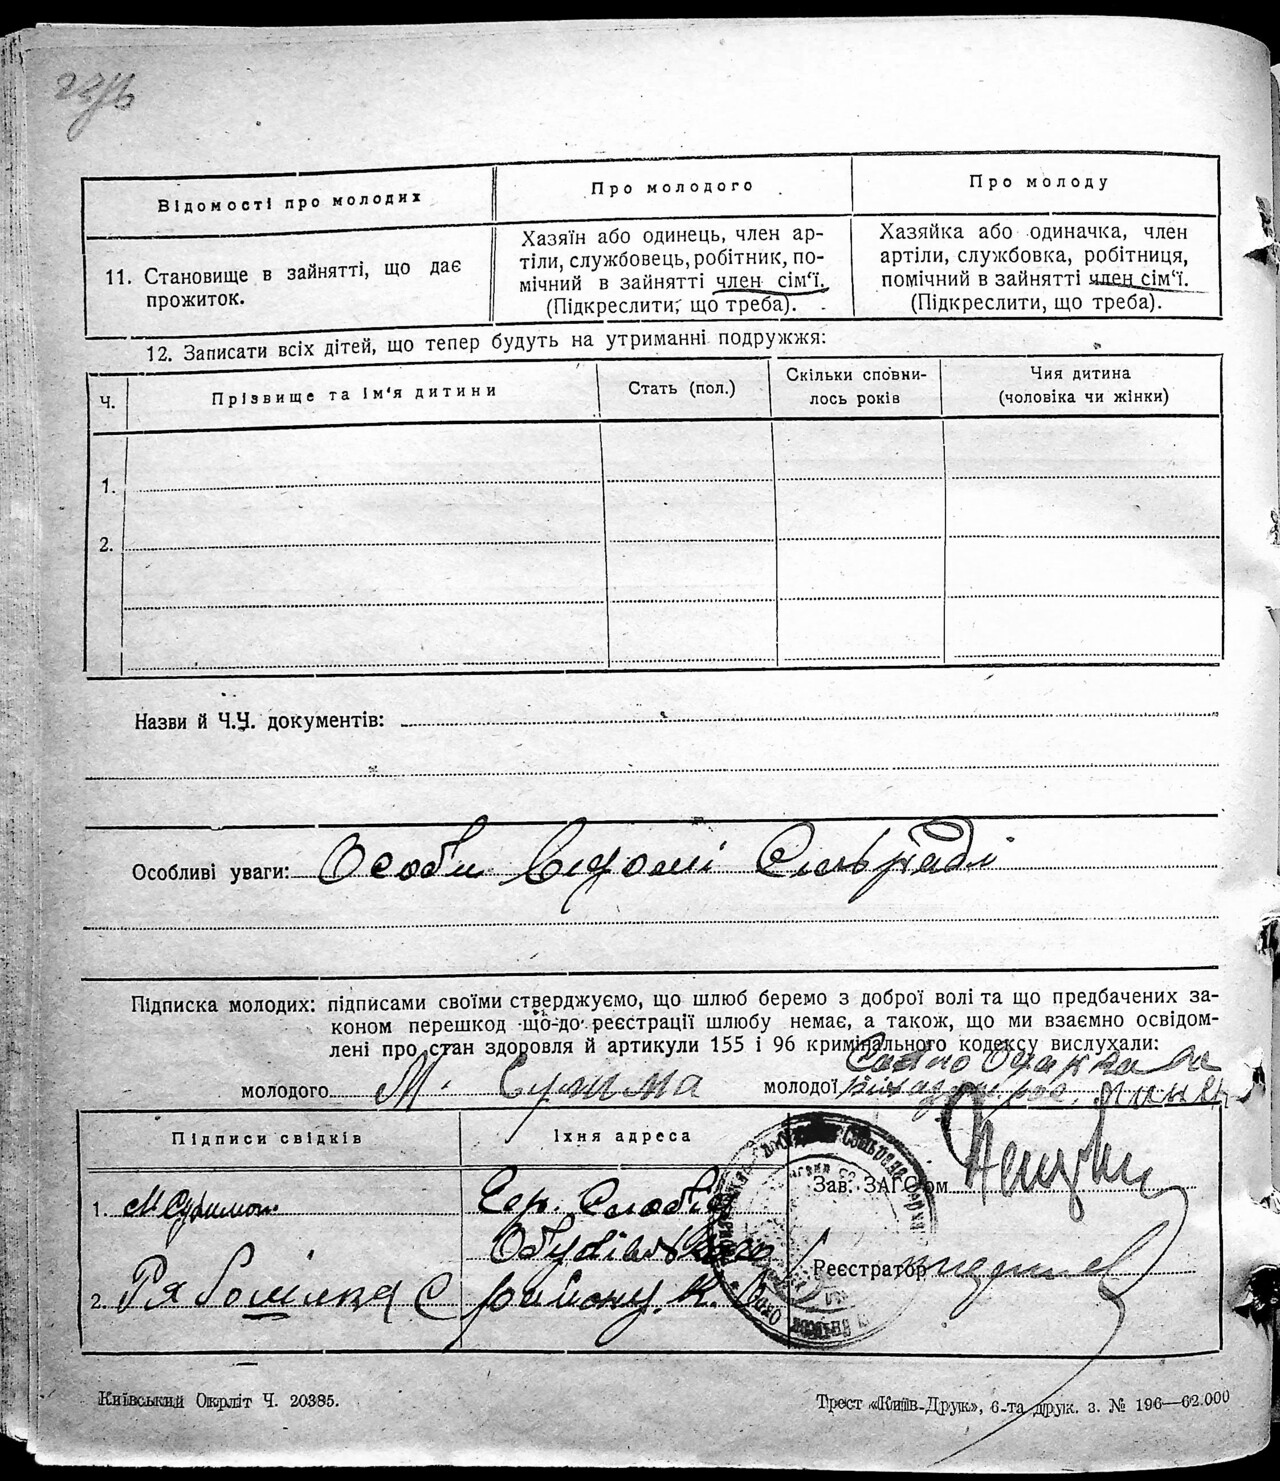 Відомості про молодих
Про молодого
Про молоду
11. Становище в зайнятті, що дає
прожиток.
Хазяїн або одинець, член ар-
тіли, службовець, робітник, по-
мічний в зайнятті член сім'ї.
(Підкреслити, що треба).
Хазяйка або одиначка, член
артіли, службовка, робітниця,
помічний в зайнятті член сім'ї.
(Підкреслити, що треба).
12. Записати всіх дітей, що тепер будуть на утриманні подружжя:
Ч.
Прізвище та ім'я дитини
Стать (пол.)
Скільки сповни-
лось років
Чия дитина
(чоловіка чи жінки)
1.
2.
Назви й Ч.Ч. документів:
Особливі уваги: Особи відомі Сільраді
Підписка молодих: підписами своїми стверджуємо, що шлюб беремо з доброї волі та що предбачених за-
коном перешкод що-до реєстрації шлюбу немає, а також, що ми взаємно освідом-
лені про стан здоровля й артикули 155 і 96 кримінального кодексу вислухали:
молодого М. Сулима молодої
Підписи свідків
Їхня адреса
1.
2.
Гер. Слобід
району К.
Зав. ЗАГС'ом
Реєстратор
Київський Окрліт Ч. 20385.
Трест «Київ-Друк», 6-та друк. з. № 196—62.000